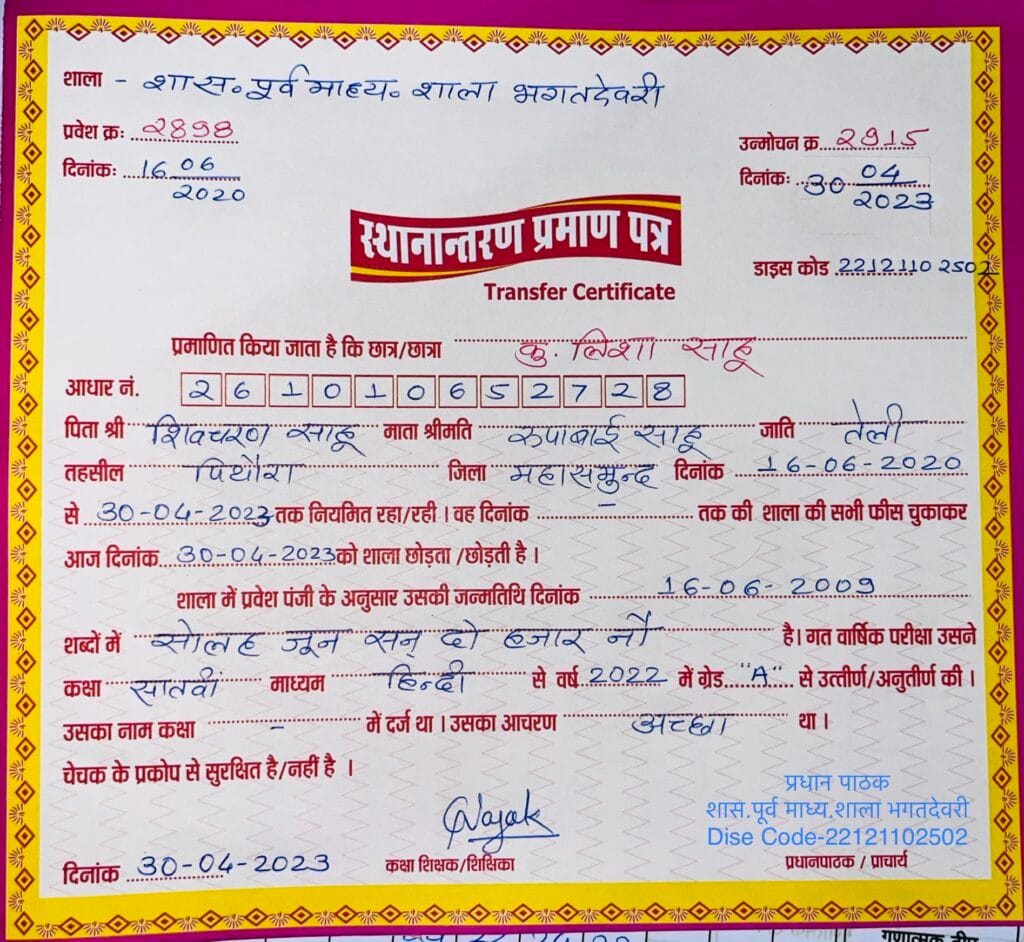 शाला - शास. पूर्व माध्य. शाला भगतदेवरी
प्रवेश क्रः 2898
उन्मोचन क्र. 2915
दिनांकः 16 06 2020
दिनांकः 30 04 2023
स्थानान्तरण प्रमाण पत्र
डाइस कोड 22121102502
Transfer Certificate
प्रमाणित किया जाता है कि छात्र/छात्रा कु. लिशा साहू
आधार नं. 261010652728
पिता श्री शिवचरण साहू माता श्रीमति रुपाबाई साहू जाति तेली
तहसील पिथौरा जिला महासमुन्द दिनांक 16-06-2020
से 30-04-2023 तक नियमित रहा/रही । वह दिनांक - तक की शाला की सभी फीस चुकाकर
आज दिनांक 30-04-2023 को शाला छोड़ता /छोड़ती है ।
शाला में प्रवेश पंजी के अनुसार उसकी जन्मतिथि दिनांक 16-06-2009
शब्दों में सोलह जून सन् दो हजार नौ है। गत वार्षिक परीक्षा उसने
कक्षा सातवीं माध्यम हिन्दी से वर्ष 2022 में ग्रेड "A" से उत्तीर्ण/अनुतीर्ण की ।
उसका नाम कक्षा - में दर्ज था । उसका आचरण अच्छा था ।
चेचक के प्रकोप से सुरक्षित है/नहीं है ।
प्रधान पाठक
शास.पूर्व माध्य.शाला भगतदेवरी
Nayak
Dise Code-22121102502
दिनांक 30-04-2023 कक्षा शिक्षक/शिक्षिका प्रधानपाठक / प्राचार्य